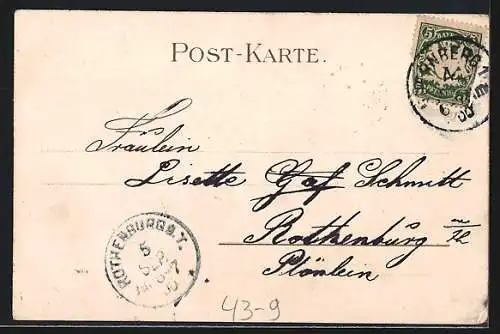 POST-KARTE.
Fräulein
Lisette Graf Schmitt
Rothenburg a/T
Plönlein
ROTHENBURG O. T.
5
43-9